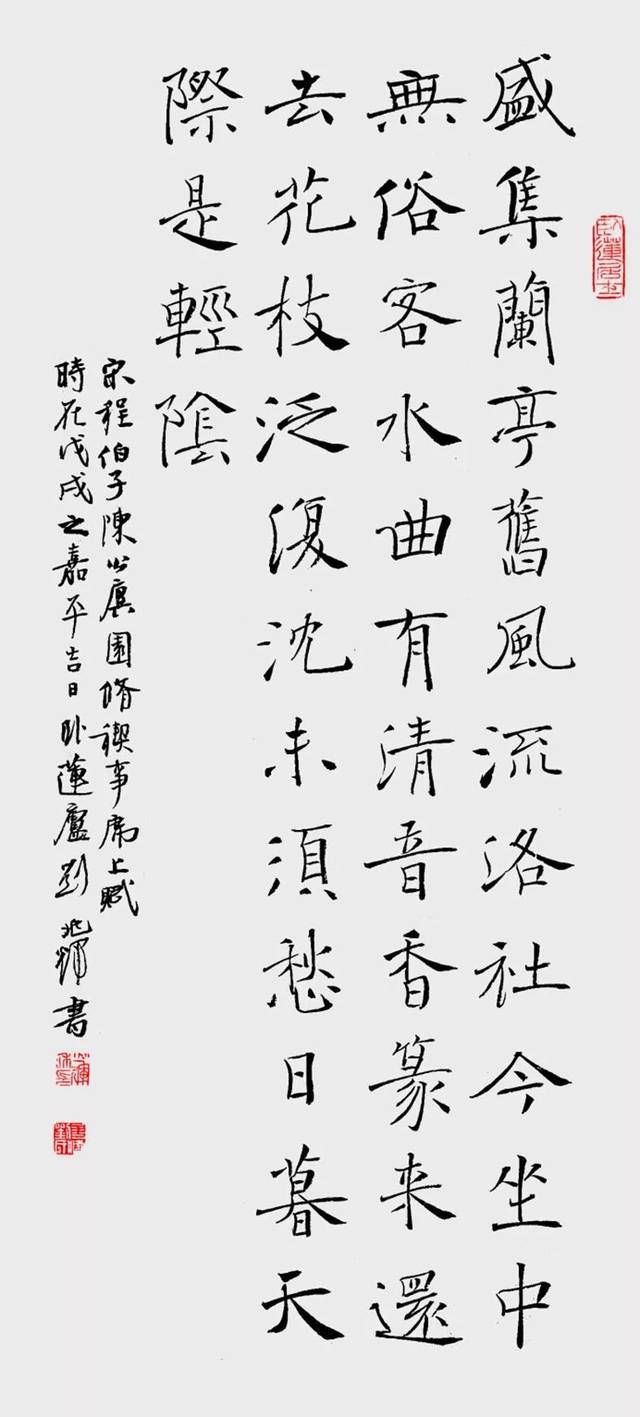 盛集蘭亭舊風流洛社今坐中
無俗客水曲有清音香篆来還
去花枝泛復沈未須愁日暮天
際是輕陰
宋程伯子陳公廙園脩禊事席上賦
時在戊戌之嘉平吉日卧蓮廬劉兆輝書
卧蓮居士